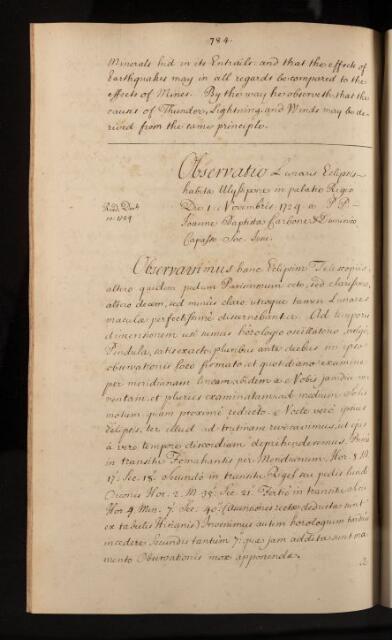 784.
Minerals hid in its Entrails: and that the effects of
Earthquakes may in all regards be compared to the
effects of Mines. By the way he observeth that the
causes of Thunder, Lightning and Winds may be de-
rived from the same principle.
Observatio Lunaris Eclipsis
habita Ulyssipone in palatio Regio
Die 1. Novembris. 1724 a P P
Joanne Baptista Carbone & Dominico
Capasso Soc. Jesu.
Read Decb
10. 1724
Observavimus hanc Eclipsim Telescopiis,
altero quidem pedum Parisinorum octo, sed clarissimo,
altero decem, sed minus claro: utroque tamen Lunares
maculæ perfectissime discernebantur. Ad temporis
dimensionem usi sumus horologio oscillatorio,
Pendula, satis exacto, pluribus ante diebus in ipso
observationis loco firmato, et quotidiano examine
per meridianam lineam ibidem a Nobis jamdiu in-
ventam et pluries examinatam, ad medium Solis
motum quam proxime redacto. Nocte vero ipsius
eclipsis, ter illud ad trutinam revocavimus, ut ejus
a vero tempore discordiam deprehenderemus. Primo
in transitu Fomahantis per Meridianum, Hor. 8. M.
17. Sec. 18. Secundo in transitu Rigel seu pedis lucidi
Orionis Hor. 2. M. 39. Sec. 21. Tertio in transitu
Hor 4. Min. 7. Sec. 40. (Ascensiones rectæ deductæ sunt
ex tabulis ) Invenimus autem horologium tardius
incedere Secundis tantum 7. quæ jam addita sunt mo-
mento Observationis mox apponenda.